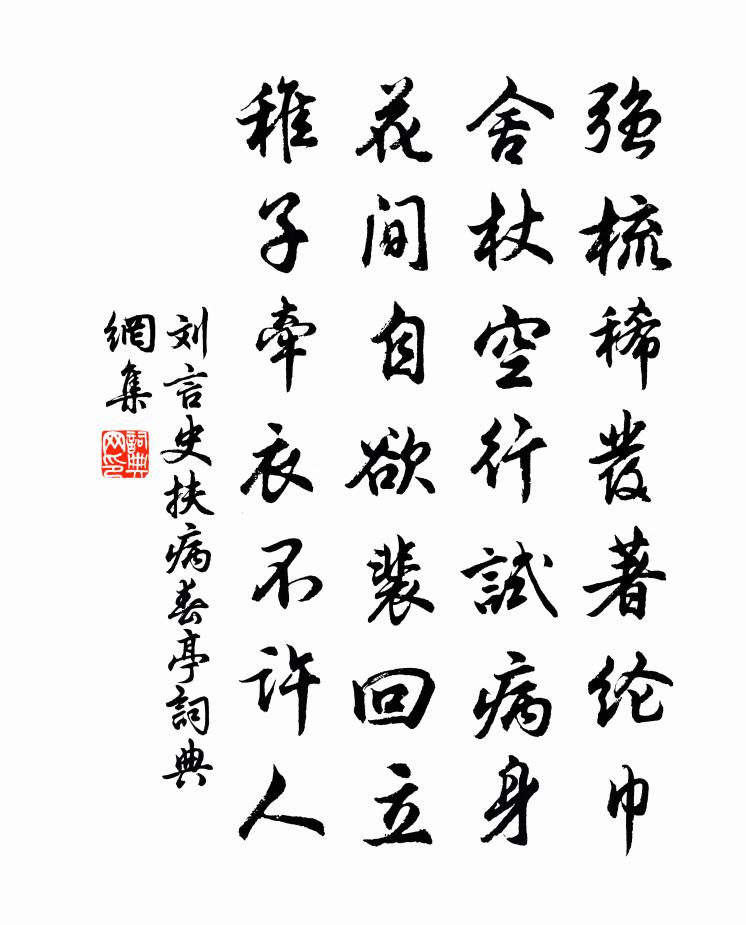 强梳稀發著纶巾
舍杖空行試病身
花间自欲裴回立
稚子牽衣不许人
刘言史扶病春亭詞典
網集
詞典网印